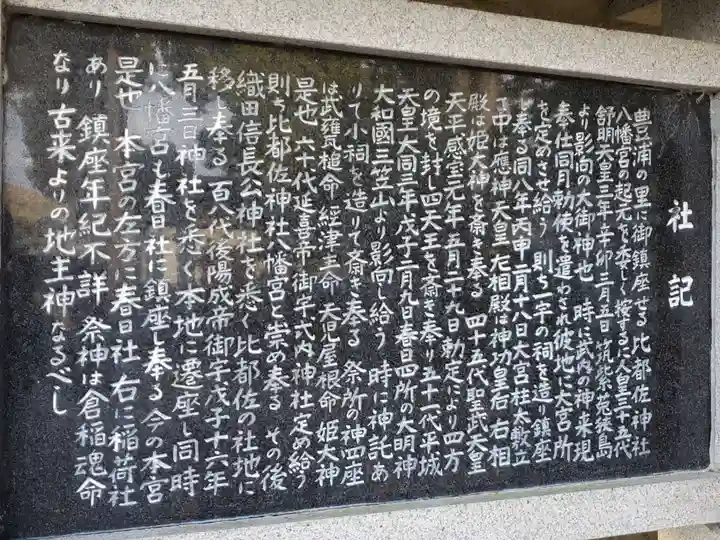 社記
豊浦の里に御鎮座せる比都佐神社
八幡宮の起元を委しく按するに人皇三十五代
舒明天皇三年辛卯三月五日筑紫菟狭島
より影向の大御神也 時に武内の神来現
奉仕同月勅使を遣わされ彼地に大宮所
を定めさせ給う 則ち一宇の祠を造り鎮座
し奉る同八年丙申二月十八日大宮柱太敷立
て中は應神天皇左相殿は神功皇后右相
殿は姫大神を斎き奉る 四十五代聖武天皇
天平感宝元年五月二十九日勅定により四方
の境を封し四天王を斎き奉り五十一代平城
天皇大同三年戊子二月九日春日四所の大明神
大和國三笠山より影向し給う 時に神託あ
りて小祠を造りて斎き奉る 祭所の神四座
は武甕槌命 經津主命 天児屋根命 姫大神
是也 六十代延喜帝御宇式内神社定め給う
則ち比都佐神社八幡宮と崇め奉る その後
織田信長公神社を悉く比都佐の社地に
移し奉る 百八代後陽成帝御宇戊子十六年
五月三日神社を悉く本地に遷座し同時
に八幡宮も春日社に鎮座し奉る 今の本宮
是也 本宮の左方に春日社 右に稲荷社
あり 鎮座年紀不詳 祭神は倉稲魂命
なり 古来よりの地主神なるべし